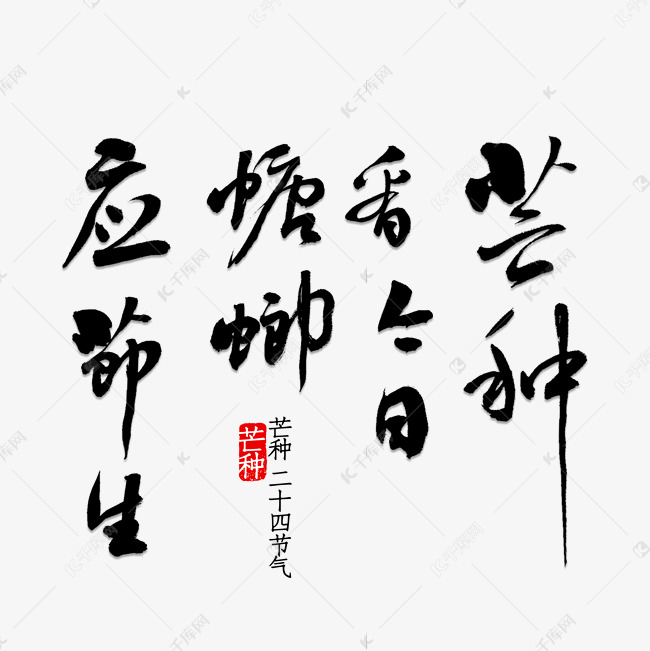 芒种
看今日
螗螂
应節生
芒种 二十四节气
芒种
千库网